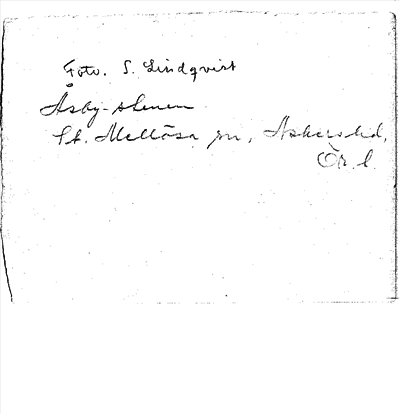 Foto. S. Lindqvist
Åsby-stenen
St. Mellösa sn, Askers hd,
Ör. l.